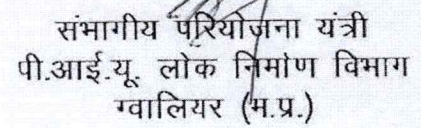 संभागीय परियोजना यंत्री
पी.आई.यू. लोक निर्माण विभाग
ग्वालियर (म.प्र.)